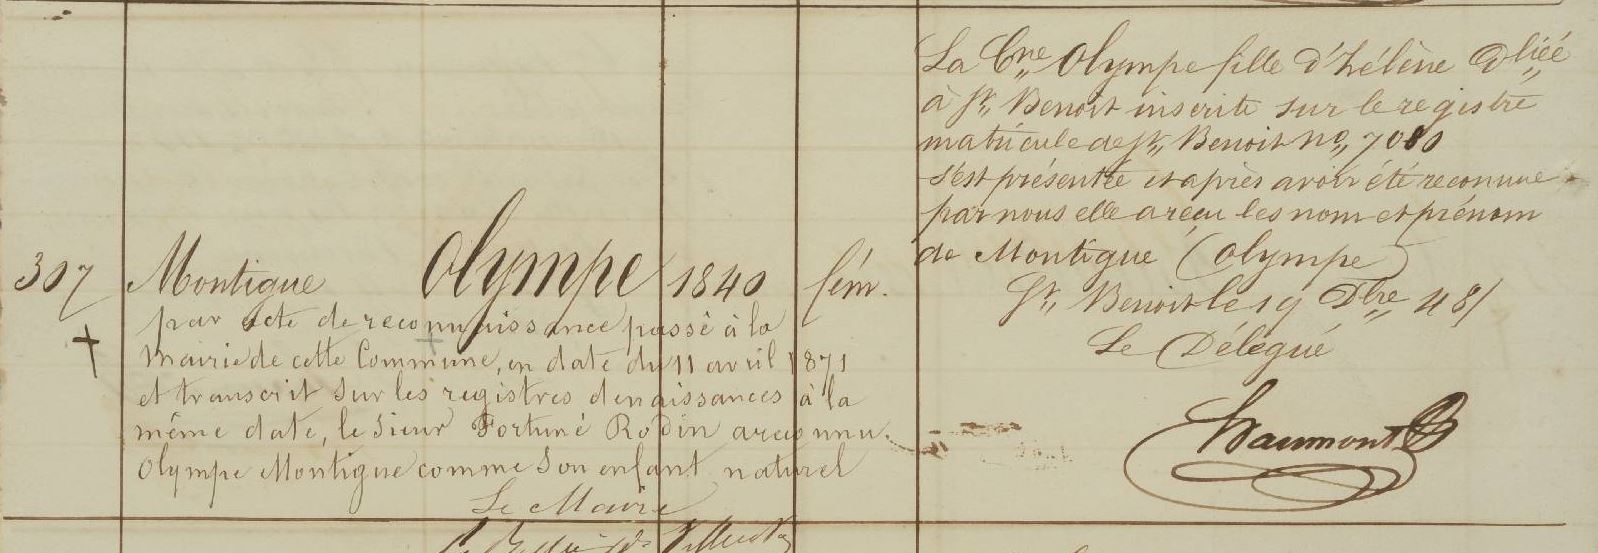 307 Montigue Olympe 1840 fém.
par acte de reconnaissance passé à la
mairie de cette Commune, en date du 11 avril 1871
et transcrit sur les registres de naissances à la
même date, le sieur Fortuné Rodin a reconnu
Olympe Montigue comme son enfant naturel
Le Maire
La Cne Olympe fille d'hélène Dliée
à St Benoit inscrite sur le registre
matricule de St Benoit no 7080
s'est présentée et après avoir été reconnue
par nous elle a reçu les nom et prénom
de Montigue (Olympe)
St Benoit le 19 Dbre 48/
Le Délégué